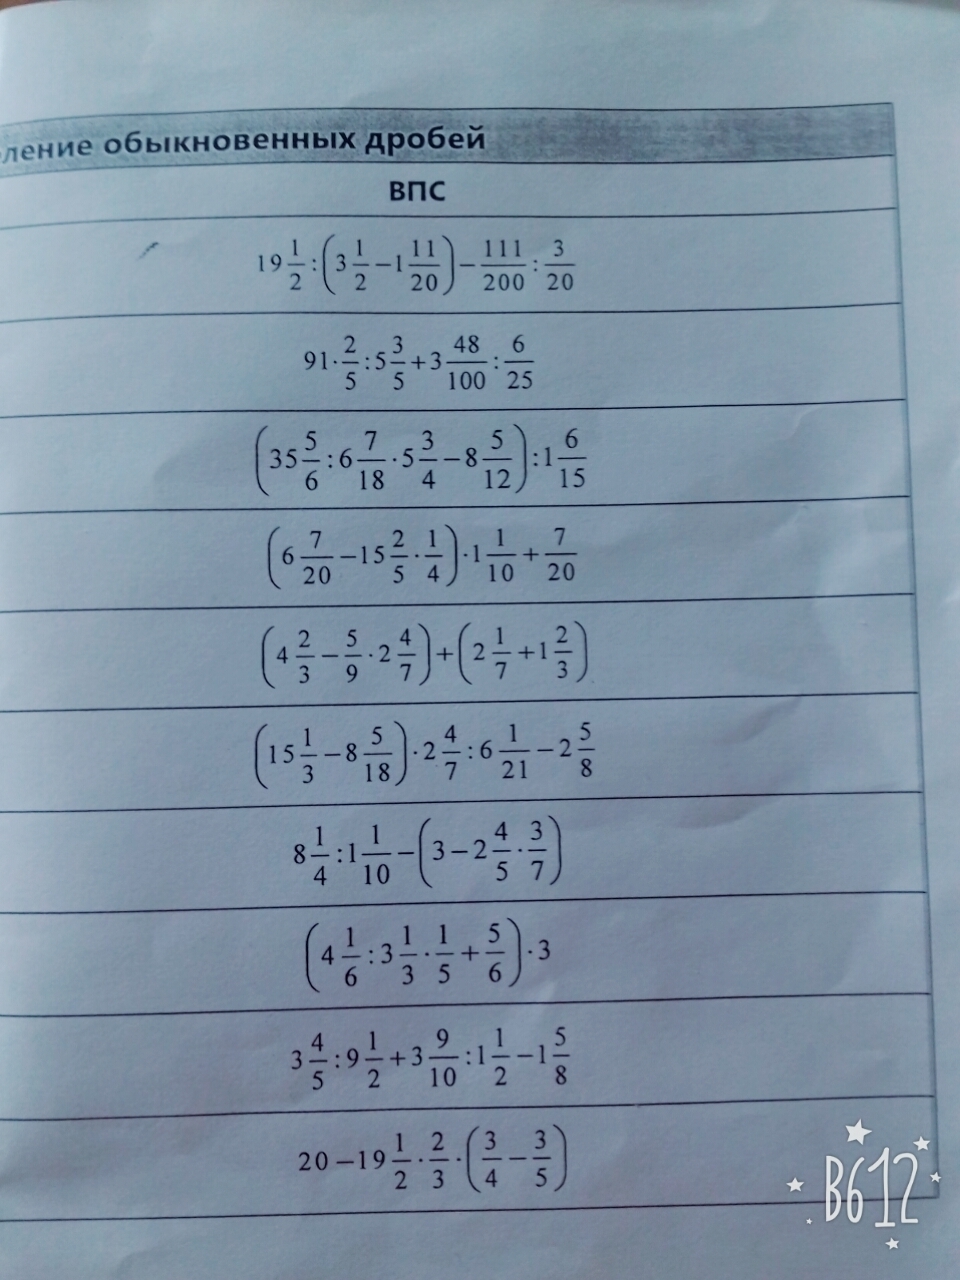 ление обыкновенных дробей
ВПС
19 1/2 : (3 1/2 − 1 11/20) − 111/200 : 3/20
91 · 2/5 : 5 3/5 + 3 48/100 : 6/25
(35 5/6 : 6 7/18 · 5 3/4 − 8 5/12) : 1 6/15
(6 7/20 − 15 2/5 · 1/4) · 1 1/10 + 7/20
(4 2/3 − 5/9 · 2 4/7) + (2 1/7 + 1 2/3)
(15 1/3 − 8 5/18) · 2 4/7 : 6 1/21 − 2 5/8
8 1/4 : 1 1/10 − (3 − 2 4/5 · 3/7)
(4 1/6 : 3 1/3 · 1/5 + 5/6) · 3
3 4/5 : 9 1/2 + 3 9/10 : 1 1/2 − 1 5/8
20 − 19 1/2 · 2/3 · (3/4 − 3/5)
B612